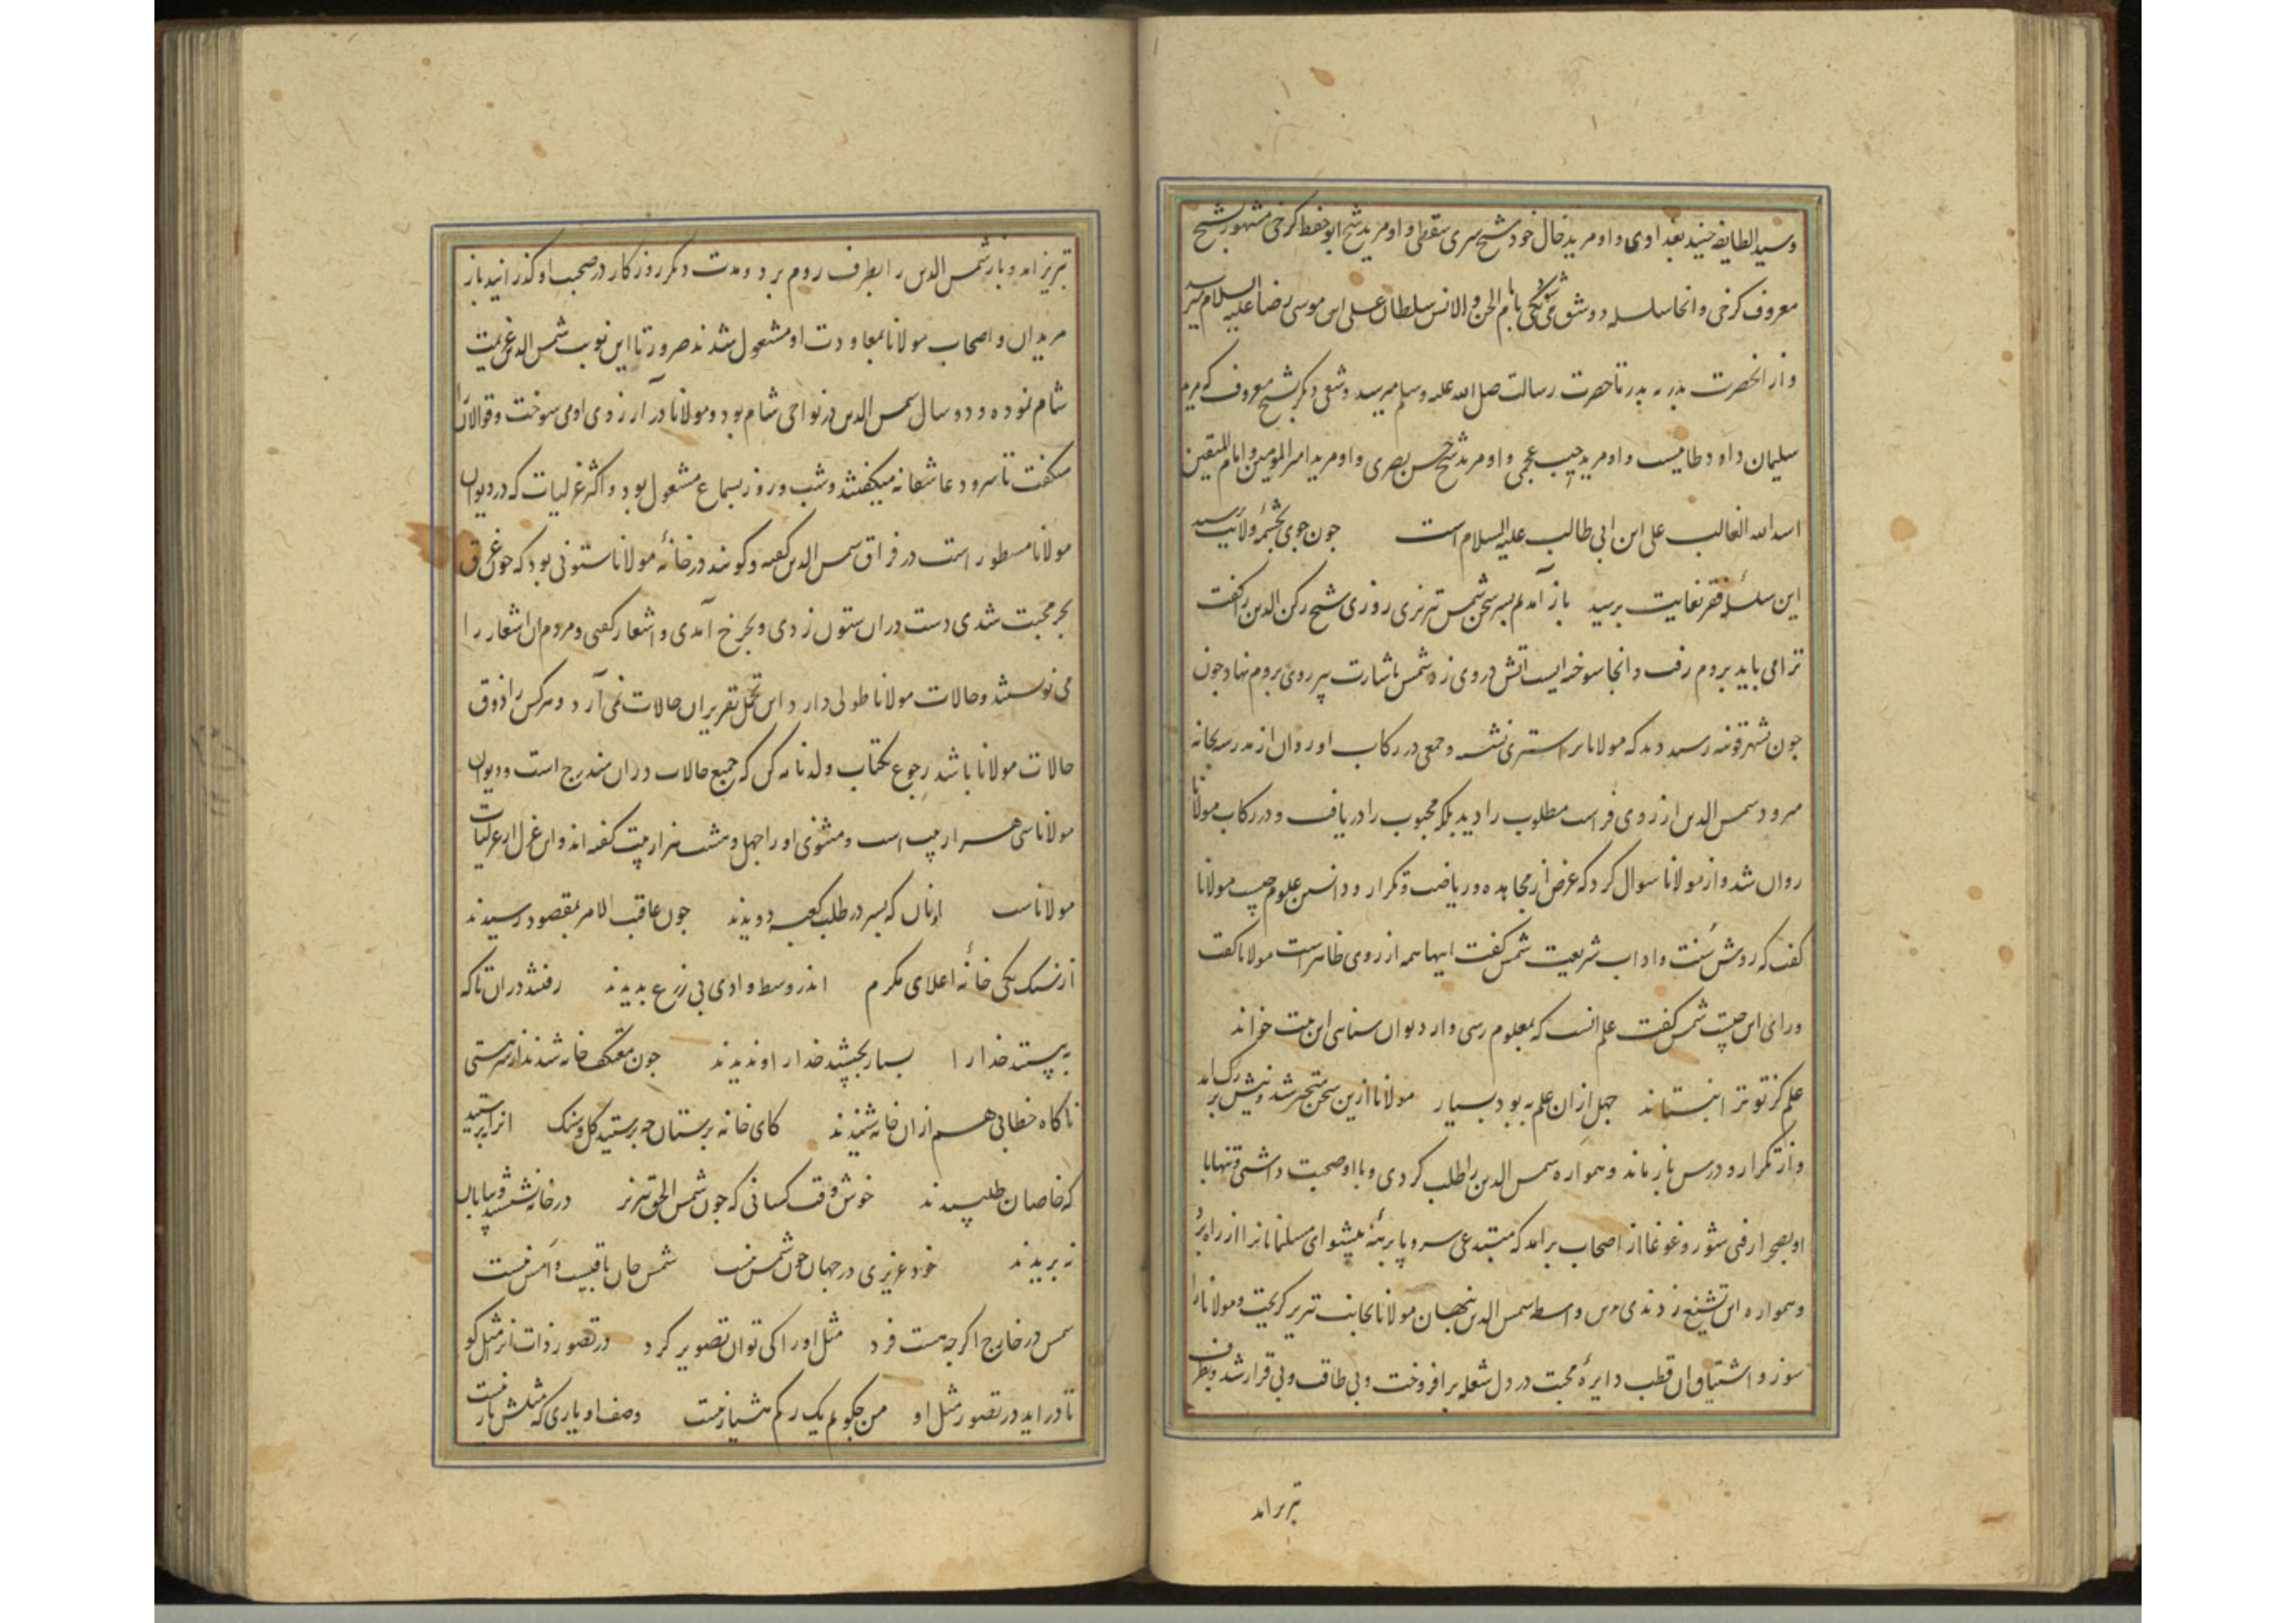 وسید الطایفه جنید بغدادی و او مرید خال خود شیخ سری سقطی و او مرید شیخ ابو حفظ کرخی مشهور بشیخ
معروف کرخی و انجا سلسله دو شق می‌شود یکی بامام الجن والانس سلطان علی ابن موسی رضا علیه السلام میرسد
و از انحضرت پدر به پدر تا حضرت رسالت صلی الله علیه وسلم میرسد و شقی دیکر بشیخ معروف که مرید
سلیمان داود طاییست و او مرید حبیب عجمی و او مرید شیخ حسن بصری و او مرید امیر المومنین و امام المتقین
اسد الله الغالب علی ابن ابی طالب علیه السلام است جون جوی بچشمهٔ ولایت رسید
این سلسلهٔ فقر بغایت برسید باز آمدیم بسر سخن شمس تبریزی روزی شیخ رکن الدین را کفت
ترا می باید بروم رفت و انجا سوخته‌ایست اتش در وی زد شمس باشارت پیر روی بروم نهاد جون
جون بشهر قونیه رسید دید که مولانا بر استری نشسته و جمعی در رکاب او روان از مدرسه بخانه
میرود شمس الدین از روی فراست مطلوب را دید بلکه محبوب را دریافت و در رکاب مولانا
روان شد و از مولانا سوال کرد که غرض از مجاهده و ریاضت و تکرار و دانستن علوم چیست مولانا
کفت که روش سُنت و اداب شریعت شمس کفت اینها همه از روی ظاهر است مولانا کفت
ورای این چیست شمس کفت علم انست که بمعلوم رسی و از دیوان سنایی این بیت خواند
علم کز تو ترا نبستاند جهل ازان علم به بود بسیار مولانا ازین سخن متحیر شد و پیش بزرک امد
و از تکرار و درس باز ماند و همواره شمس الدین را طلب کردی و با او صحبت داشتی و تنها با
او بصحرا رفتی شور و غوغا از اصحاب برامد که مبتدعی سر و پا برهنه پیشوای مسلمانانرا از راه بُرد
و همواره این تشنیع زدندی بدین واسطه شمس الدین پنهان مولانا بجانب تبریز کریخت و مولانا را
سوز و اشتیاق ان قطب دایرهٔ محبت در دل شعله برافروخت و بی طاقت و بی قرار شد و بطرف
تبریز امد
تبریز امد و باز شمس الدین را بطرف روم برد و مدت دیکر روزکار در صحبت او کذرانید باز
مریدان و اصحاب مولانا بمعاودت او مشغول شدند ضرورتا این نوبت شمس الدین عزیمت
شام نموده و دو سال شمس الدین در نواحی شام بود و مولانا در آرزوی او می سوخت و قوالانرا
میکفت تا سرود عاشقانه میکفتند و شب و روز بسماع مشغول بود و اکثر غزلیات که در دیوان
مولانا مسطور است در فراق شمس الدین کفته و کویند در خانهٔ مولانا ستونی بود که جون غرق
بحر محبت شدی دست دران ستون زدی و بچرخ آمدی و اشعار کفتی و مردم ان اشعار را
می نوشتند و حالات مولانا طولی دارد و این محل تقریر ان حالات نمی آرد و هرکس را ذوق
حالات مولانا باشد رجوع بکتاب ولدنامه کن که جمیع حالات دران مندرج است و دیوان
مولانا سی هزار بیت است و مثنوی او را چهل و هشت هزار بیت کفته اند و این غزل از غزلیات
مولاناست انان که بسر در طلب کعبه دویدند جون عاقبت الامر بمقصود رسیدند
از سنک یکی خانهٔ اعلای مکرم اندر وسط وادی بی زرع بدیدند رفتند دران تا که
ببینند خدا را بسیار بجستند خدا را و ندیدند جون معتکف خانه شدند از سر مستی
ناکاه خطابی هم ازان خانه شنیدند کای خانه پرستان چه پرستید کل و سنک انرا بپرستید
که خاصان طلبیدند خوش وقت کسانی که جون شمس الحق تبریز در خانه نشستند و بیابان
نه بریدند خود غریبی در جهان جون شمس نیست شمس جان باقیست و اَمس نیست
شمس در خارج اکر جه هست فرد مثل او را کی توان تصویر کرد در تصور ذات انرا مثل کو
تا دراید در تصور مثل او من جکویم یک رکم هشیار نیست وصف او یاری که مثلش یار نیست